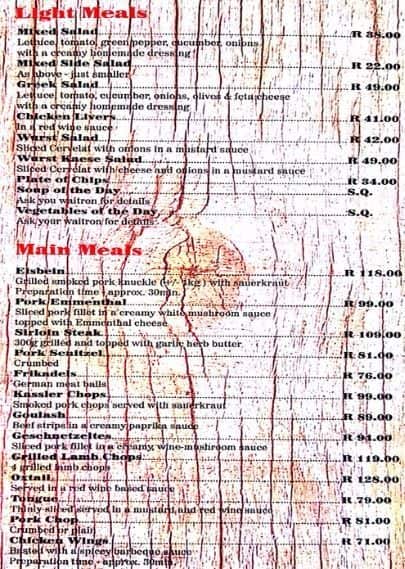 Light Meals
Mixed Salad R 38.00
Lettuce, tomato, green pepper, cucumber, onions
with a creamy homemade dressing
Mixed Side Salad R 22.00
As above - just smaller
Greek Salad R 49.00
Lettuce, tomato, cucumber, onions, olives & feta cheese
with a creamy homemade dressing
Chicken Livers R 41.00
In a red wine sauce
Wurst Salad R 42.00
Sliced Cervelat with onions in a mustard sauce
Wurst Kaese Salad R 49.00
Sliced Cervelat with cheese and onions in a mustard sauce
Plate of Chips R 34.00
Soup of the Day S.Q.
Ask you waitron for details
Vegetables of the Day S.Q.
Ask your waitron for details
Main Meals
Eisbein R 118.00
Grilled smoked pork knuckle (+/- 1kg) with sauerkraut
Preparation time - approx. 30min.
Pork Emmenthal R 99.00
Sliced pork fillet in a creamy white mushroom sauce
topped with Emmenthal cheese
Sirloin Steak R 109.00
300g grilled and topped with garlic herb butter
Pork Schnitzel R 81.00
Crumbed
Frikadels R 76.00
German meat balls
Kassler Chops R 99.00
Smoked pork chops served with sauerkraut
Goulash R 89.00
Beef strips in a creamy paprika sauce
Geschnetzeltes R 94.00
Sliced pork fillet in a creamy, wine-mushroom sauce
Grilled Lamb Chops R 119.00
4 grilled lamb chops
Oxtail R 128.00
Served in a red wine based sauce
Tongue R 79.00
Thinly sliced served a mustard and red wine sauce
Pork Chop R 81.00
Crumbed or plain
Chicken Wings R 71.00
Basted with a spicey barbeque sauce
Preparation time - approx. 30min.